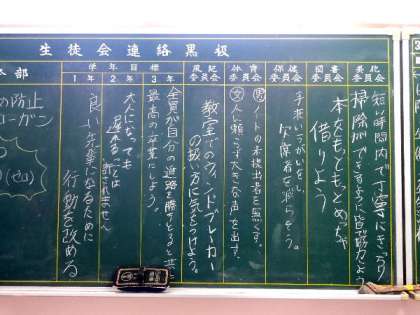 生徒会連絡黒板
美化
委員会
短い時間内で丁寧にきっちり
掃除ができるように皆協力しよう
図書
委員会
本をもっともっとめっちゃ
借りよう
保健
委員会
手洗いうがいをし、
欠席者を減らそう。
体育
委員会
男 ノートの未提出者を無くす。
女 人に頼らず大きな声を出す。
風紀
委員会
教室でのウィンドブレーカー
の扱い方に気をつけよう。
学年目標
3年
全員が自分の進路を勝ちとると共に
最高の卒業にしよう。
2年
大人になっても
遅れることは
許されません
1年
良い先輩になるために
行動を改める
本部
防止
ローガン